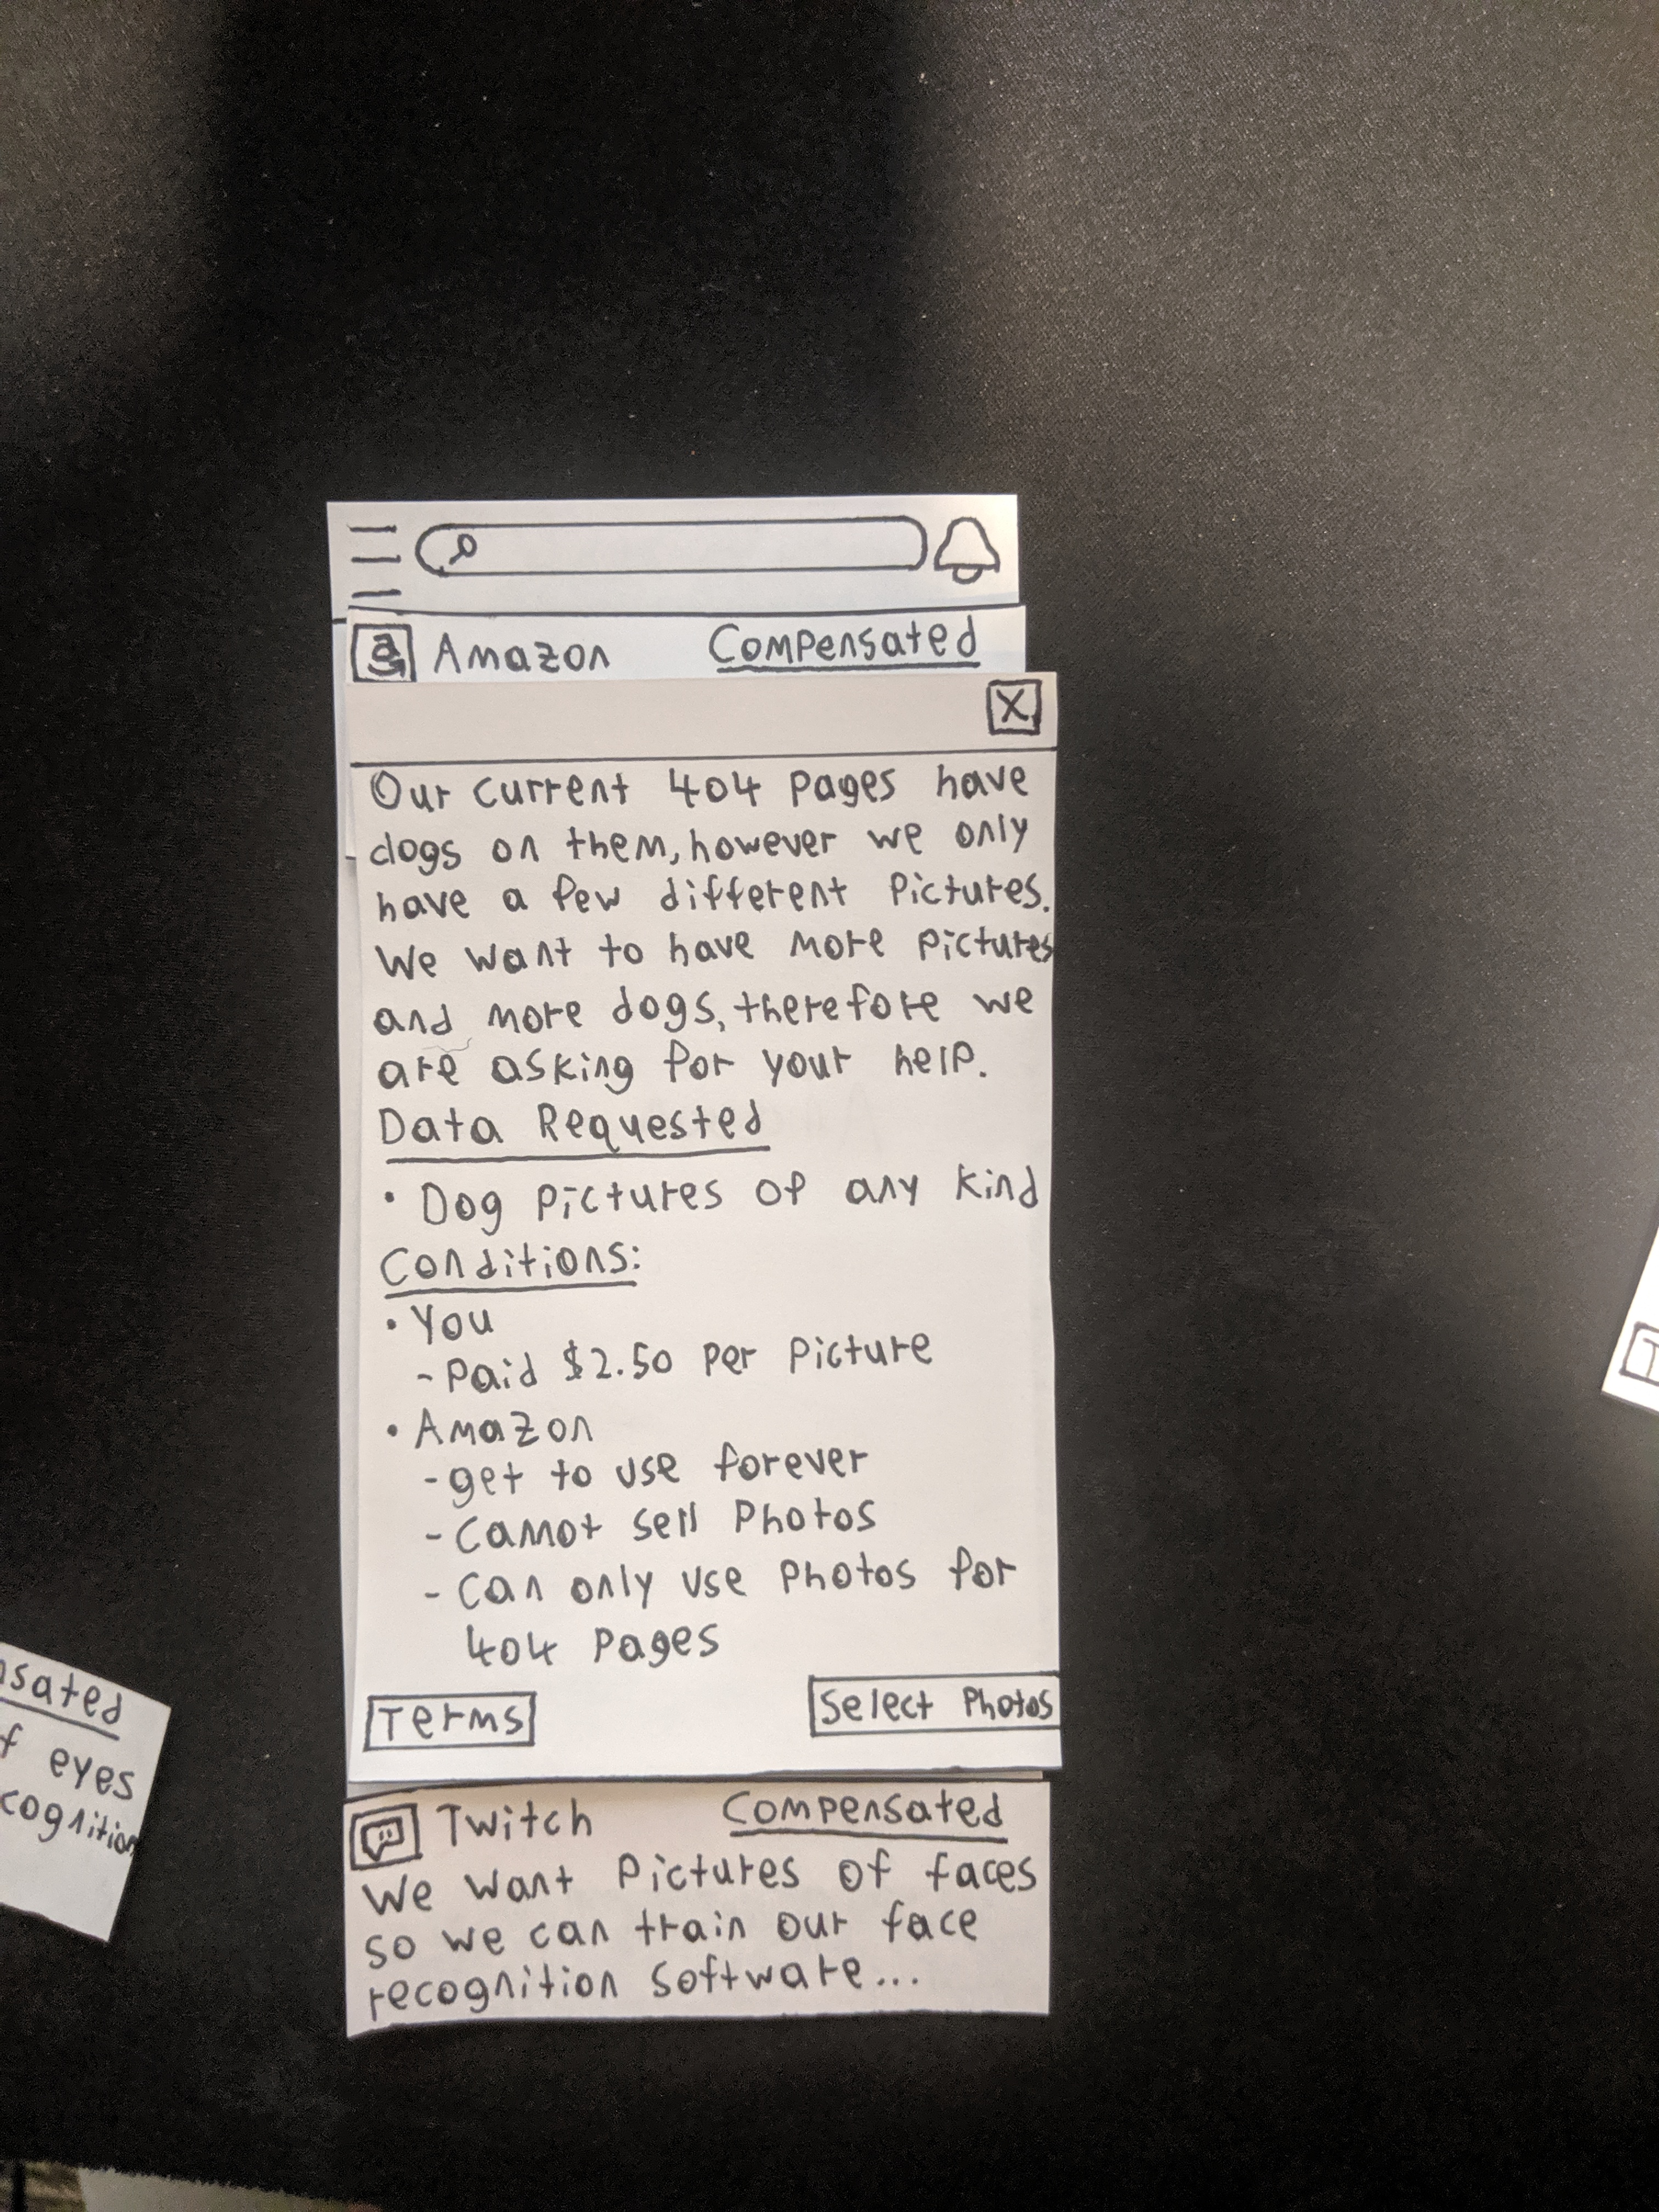 Amazon Compensated
X
Our current 404 pages have
dogs on them, however we only
have a few different pictures.
We want to have more pictures
and more dogs, therefore we
are asking for your help.
Data Requested
• Dog pictures of any kind
Conditions:
• You
- Paid $2.50 per picture
• Amazon
- get to use forever
- Cannot sell Photos
- Can only use Photos for
404 Pages
Terms
Select Photos
Twitch Compensated
We want pictures of faces
so we can train our face
recognition software...
sated
f eyes
cognition